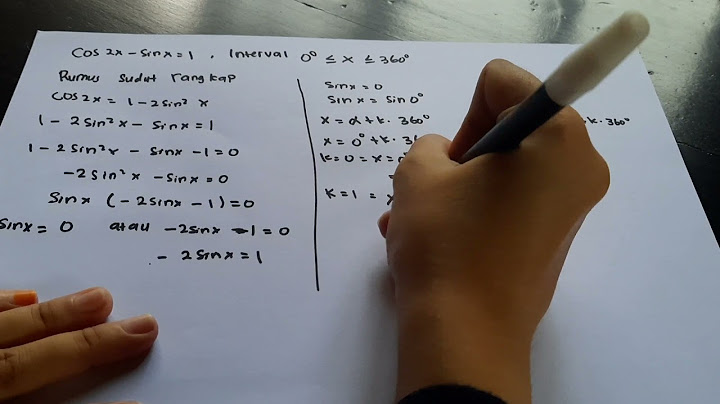 Cos 2x - sin x = 1 , Interval 0° ≤ x ≤ 360°
Rumus sudut rangkap
cos 2x = 1 - 2 sin² x
1 - 2 sin² x - sin x = 1
1 - 2 sin² x - sin x - 1 = 0
-2 sin² x - sin x = 0
Sin x (-2 sin x - 1) = 0
Sin x = 0 atau -2 sin x - 1 = 0
- 2 sin x = 1
Sin x = 0
Sin x = sin 0°
x = α + k. 360°
k. 360°
x = 0° + k. 3
k = 0 = x =
k = 1 = x